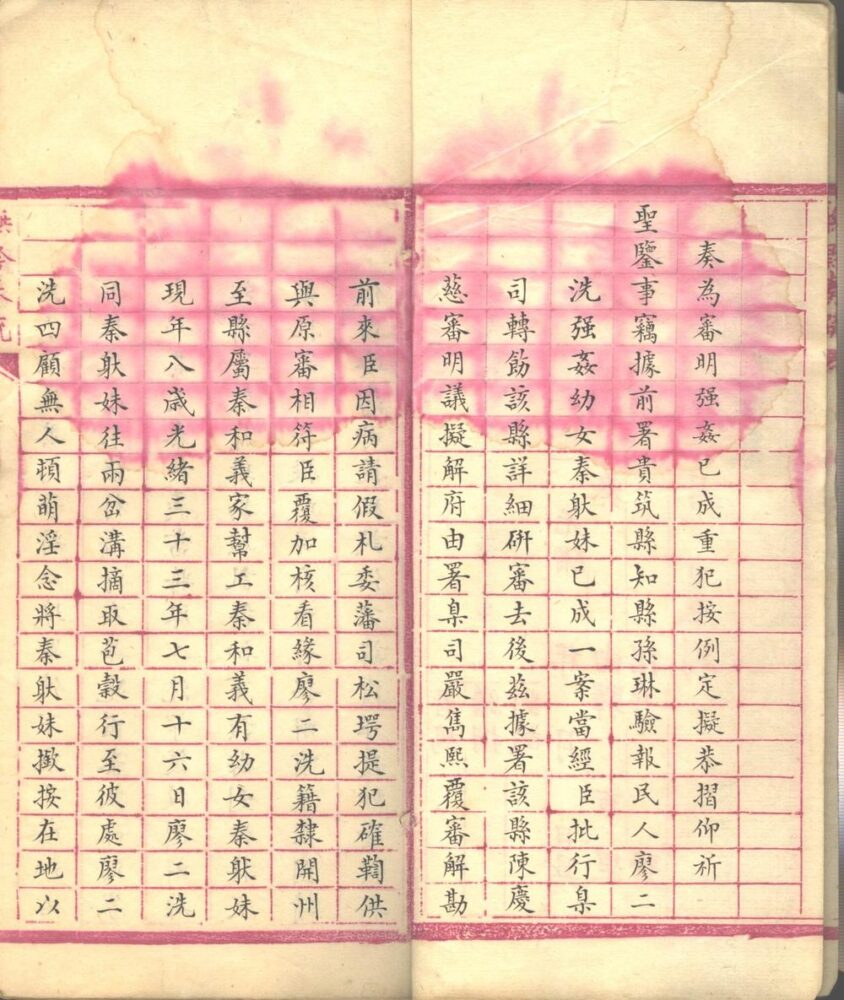 奏為審明强姦已成重犯按例定擬恭摺仰祈
聖鑒事竊據前署貴筑縣知縣孫琳驗報民人廖二
洗强姦幼女秦躾妹已成一案當經臣批行臬
司轉飭該縣詳細研審去後兹據署該縣陳慶
慈審明議擬解府由署臬司嚴雋熙覆審解勘
前來臣因病請假札委藩司松堮提犯確鞫供
與原審相符臣覆加核看緣廖二洗籍隸開州
至縣屬秦和義家幫工秦和義有幼女秦躾妹
現年八歲光緒三十三年七月十六日廖二洗
同秦躾妹往兩岔溝摘取苞穀行至彼處廖二
洗四顧無人頓萌淫念將秦躾妹撳按在地以